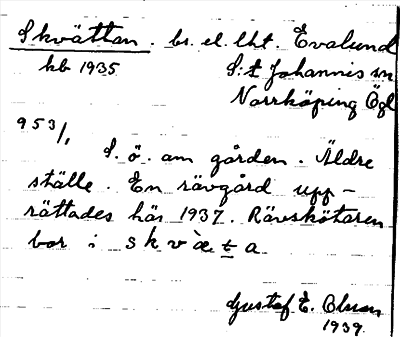 Skvättan. bs. el. lht. Evalund
kb 1935 S:t Johannis sn
Norrköping Ögl
953/1
S. ö. om gården. Äldre
ställe. En rävgård upp-
rättades här 1937. Rävskötaren
bor i skvæta
Gustaf E. Olsson
1939.